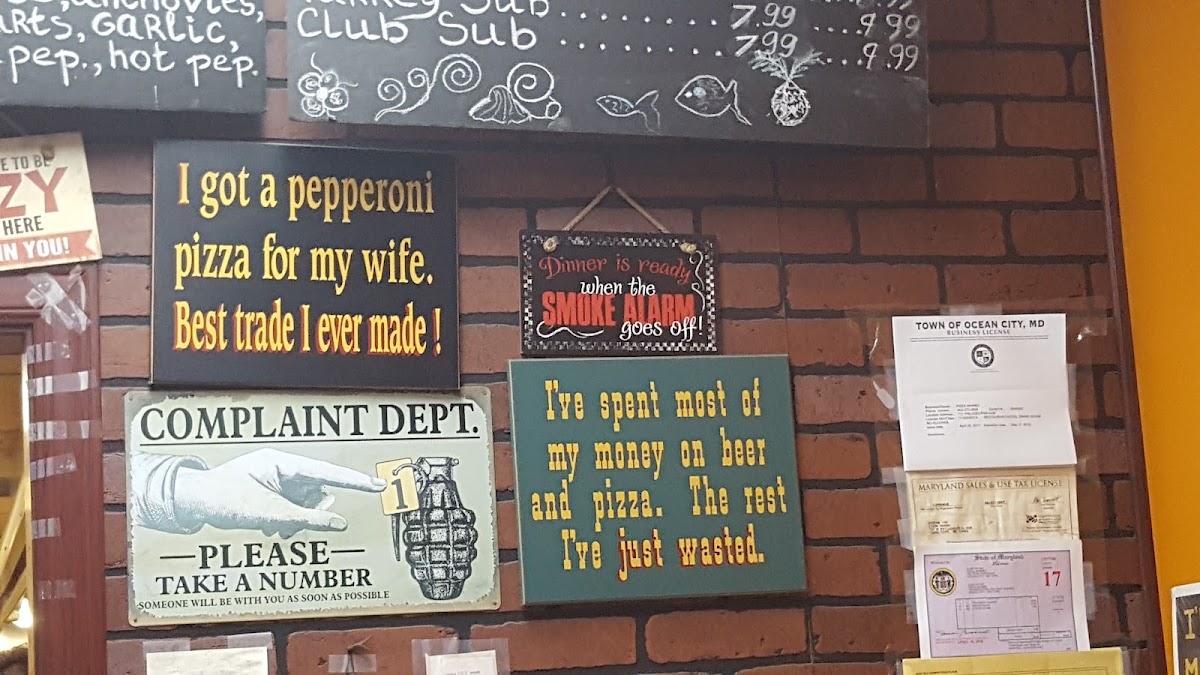 anchovies,
GARLIC,
pep., hot pep.
Turkey Sub ........ 7.99 .... 9.99
Club Sub .......... 7.99 .... 9.99
E TO BE
ZY
HERE
IN YOU!
I got a pepperoni
pizza for my wife.
Best trade I ever made!
Dinner is ready
when the
SMOKE ALARM
goes off!
COMPLAINT DEPT.
1
PLEASE
TAKE A NUMBER
SOMEONE WILL BE WITH YOU AS SOON AS POSSIBLE
I've spent most of
my money on beer
and pizza. The rest
I've just wasted.
TOWN OF OCEAN CITY, MD
BUSINESS LICENSE
MARYLAND SALES & USE TAX LICENSE
State of Maryland
17